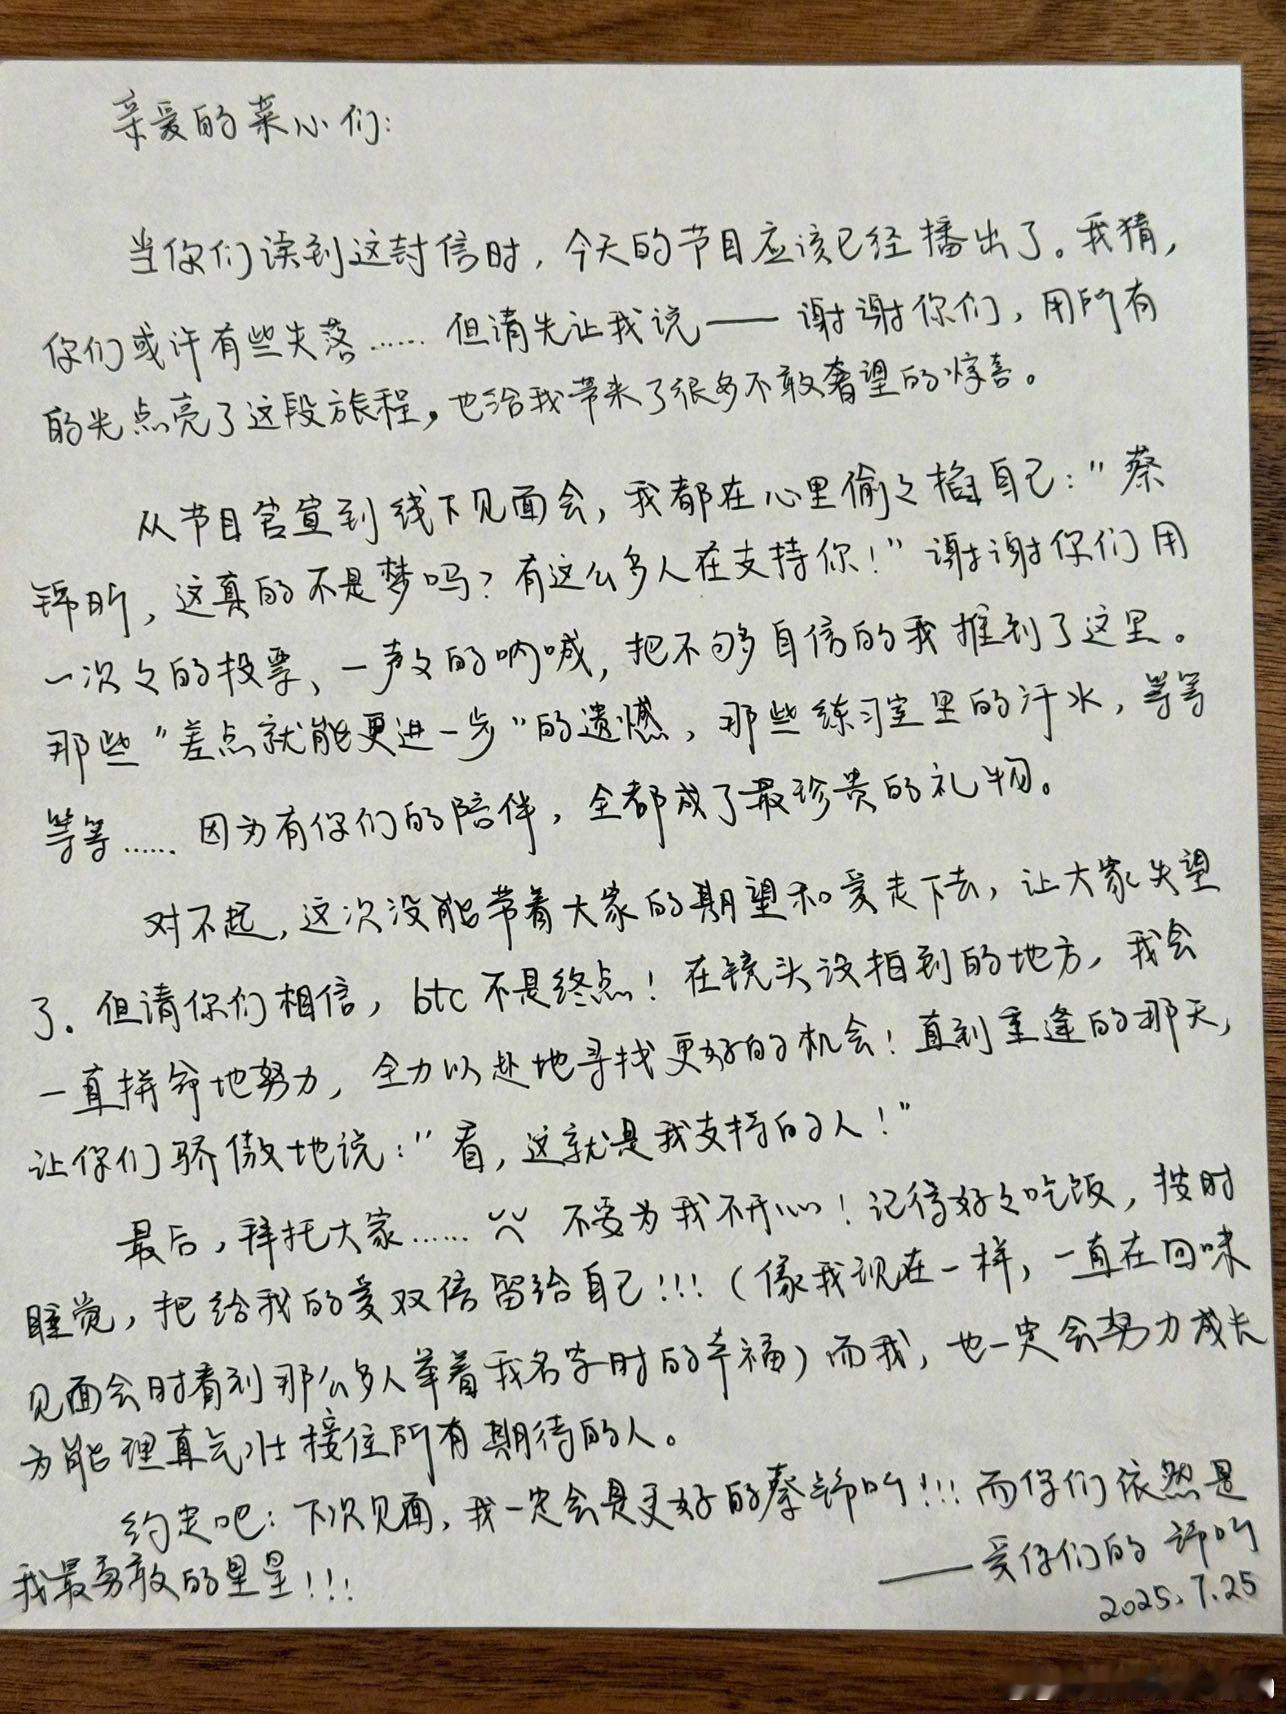 亲爱的菜心们:
当你们读到这封信时，今天的节目应该已经播出了。我猜，
你们或许有些失落……但请先让我说——谢谢你们，用所有
的光点亮了这段旅程，也给我带来了很多不敢奢望的惊喜。
从节目官宣到线下见面会，我都在心里偷々掐自己："蔡
锦昕，这真的不是梦吗？有这么多人在支持你！"谢谢你们用
一次々的投票、一声々的呐喊，把不够自信的我推到了这里。
那些"差点就能更进一步"的遗憾，那些练习室里的汗水，等等
等等……因为有你们的陪伴，全都成了最珍贵的礼物。
对不起，这次没能带着大家的期望和爱走下去，让大家失望
了。但请你们相信，btc不是终点！在镜头没拍到的地方，我会
一直拼命地努力，全力以赴地寻找更好的机会！直到重逢的那天，
让你们骄傲地说："看，这就是我支持的人！"
最后，拜托大家…… 不要为我不开心！记得好々吃饭，按时
睡觉，把给我的爱双倍留给自己!!!（像我现在一样，一直在回味
见面会时看到那么多人举着我名字时的幸福）而我，也一定会努力成长
为能理直气壮接住所有期待的人。
约定吧：下次见面，我一定会是更好的蔡锦昕!!!而你们依然是
我最勇敢的星星!!!
——爱你们的 锦昕
2025.7.25